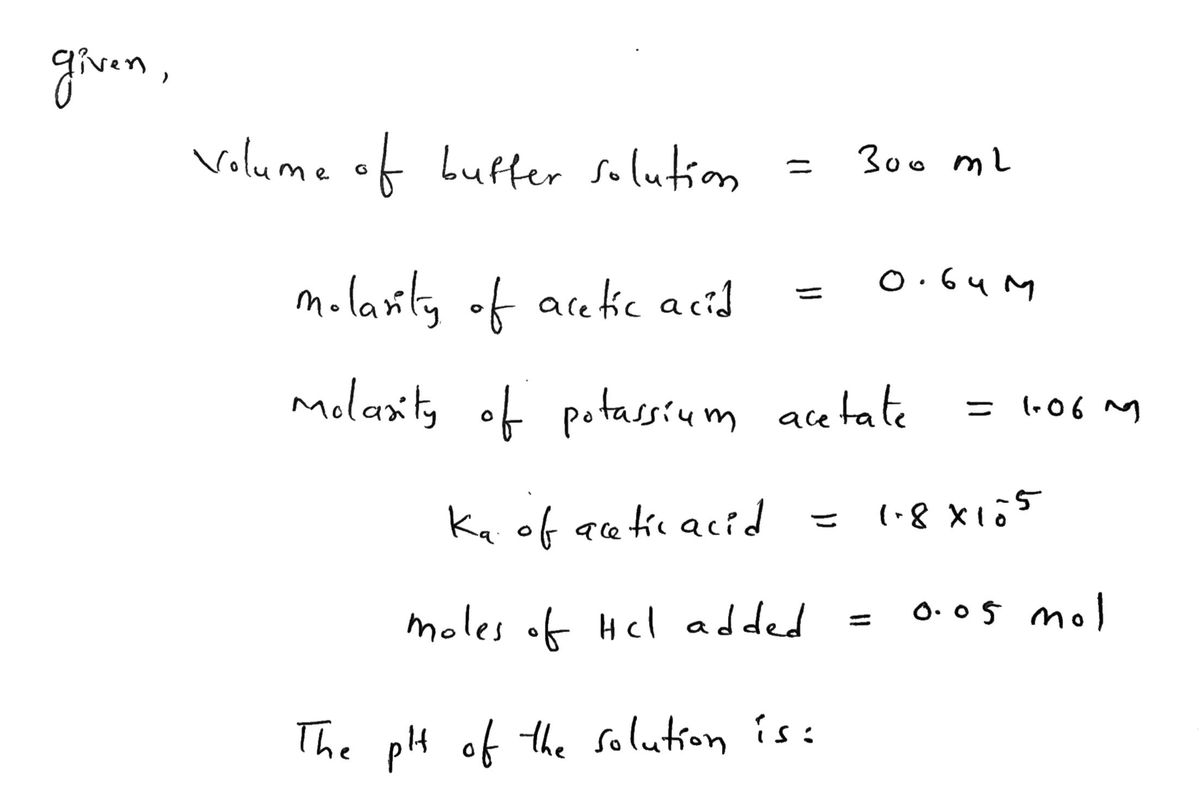 given,
Volume of buffer solution = 300 mL
molarity of acetic acid = 0.64 M
Molarity of potassium acetate = 1.06 M
Ka of acetic acid = 1.8 × 10⁻⁵
moles of HCl added = 0.05 mol
The pH of the solution is: